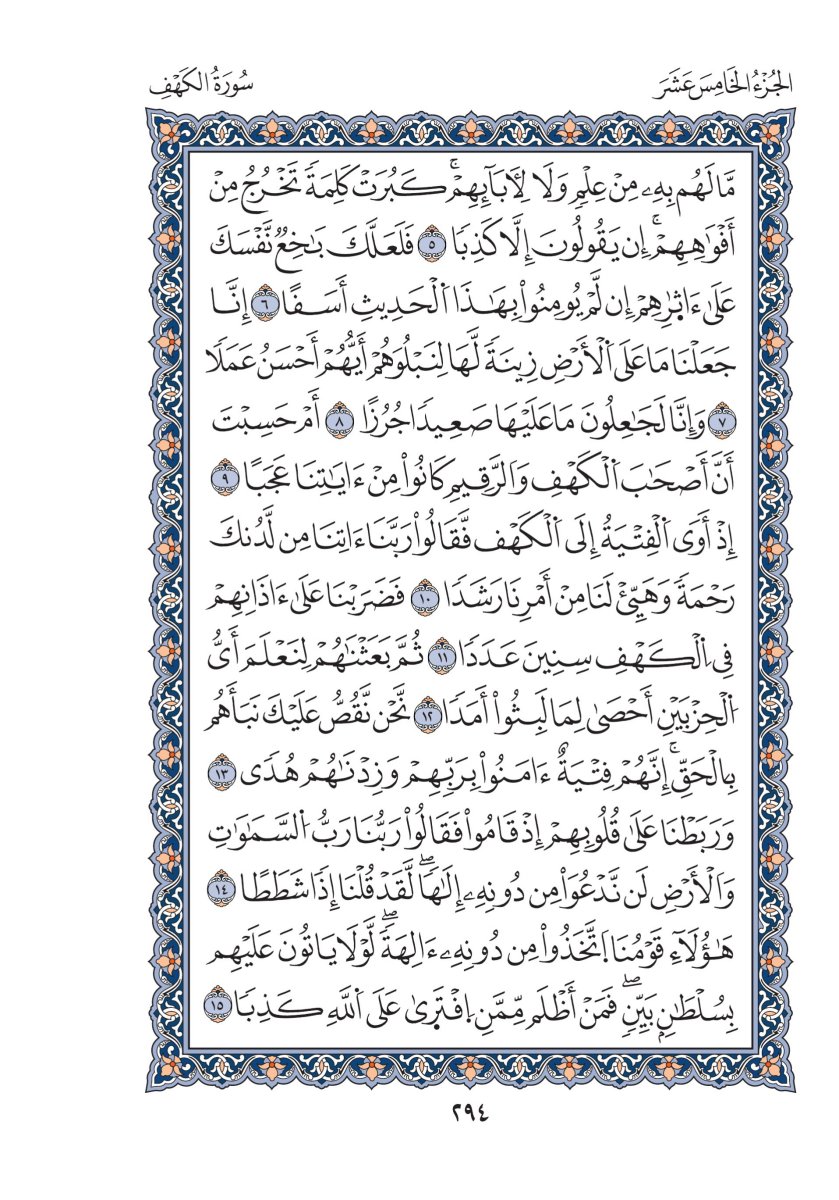 الجُزْءُ الخَامِسَ عَشَرَ
سُورَةُ الكَهْفِ
مَّا لَهُم بِهِۦ مِنْ عِلْمٖ وَلَا لِأٓبَآئِهِمْۚ كَبُرَتْ كَلِمَةٗ تَخْرُجُ مِنْ
أَفْوَٰهِهِمْۚ إِن يَقُولُونَ إِلَّا كَذِبٗا ٥ فَلَعَلَّكَ بَٰخِعٞ نَّفْسَكَ
عَلَىٰ ءَاثٰ۪رِهِمْ إِن لَّمْ يُومِنُواْ بِهَٰذَا اَلْحَدِيثِ أَسَفًا ٦ إِنَّا
جَعَلْنَا مَا عَلَى اَلْأَرْضِ زِينَةٗ لَّهَا لِنَبْلُوَهُمْ أَيُّهُمْ أَحْسَنُ عَمَلٗا
٧ وَإِنَّا لَجَٰعِلُونَ مَا عَلَيْهَا صَعِيدٗا جُرُزًا ٨ أَمْ حَسِبْتَ
أَنَّ أَصْحَٰبَ اَلْكَهْفِ وَالرَّقِيمِ كَانُواْ مِنْ ءَايَٰتِنَا عَجَبًا ٩
إِذْ أَوَى اَلْفِتْيَةُ إِلَى اَلْكَهْف فَّقَالُواْ رَبَّنَا ءَاتِنَا مِن لَّدُنكَ
رَحْمَةٗ وَهَيِّئْ لَنَا مِنْ أَمْرِنَا رَشَدٗا ١٠ فَضَرَبْنَا عَلَىٰ ءَاذَانِهِمْ
فِي اِلْكَهْفِ سِنِينَ عَدَدٗا ١١ ثُمَّ بَعَثْنَٰهُمْ لِنَعْلَمَ أَيُّ
اُلْحِزْبَيْنِ أَحْصَىٰ لِمَا لَبِثُواْ أَمَدٗا ١٢ نَّحْن نَّقُصُّ عَلَيْكَ نَبَأَهُم
بِالْحَقِّۚ إِنَّهُمْ فِتْيَةٌ ءَامَنُواْ بِرَبِّهِمْ وَزِدْنَٰهُمْ هُدٗى ١٣
وَرَبَطْنَا عَلَىٰ قُلُوبِهِمْ إِذْ قَامُواْ فَقَالُواْ رَبُّنَا رَبُّ اُلسَّمَٰوَٰتِ
وَالْأَرْضِ لَن نَّدْعُوَاْ مِن دُونِهِۦ إِلَٰهٗاۖ لَّقَدْ قُلْنَا إِذٗا شَطَطًا ١٤
هَٰٓؤُلَآءِ قَوْمُنَا اَتَّخَذُواْ مِن دُونِهِۦ ءَالِهَةٗۖ لَّوْلَا يَاتُونَ عَلَيْهِم
بِسُلْطَٰنِۭ بَيِّنٖۖ فَمَنْ أَظْلَم مِّمَّنِ اِفْتَر۪ىٰ عَلَى اَللَّهِ كَذِبٗا ١٥
٢٩٤